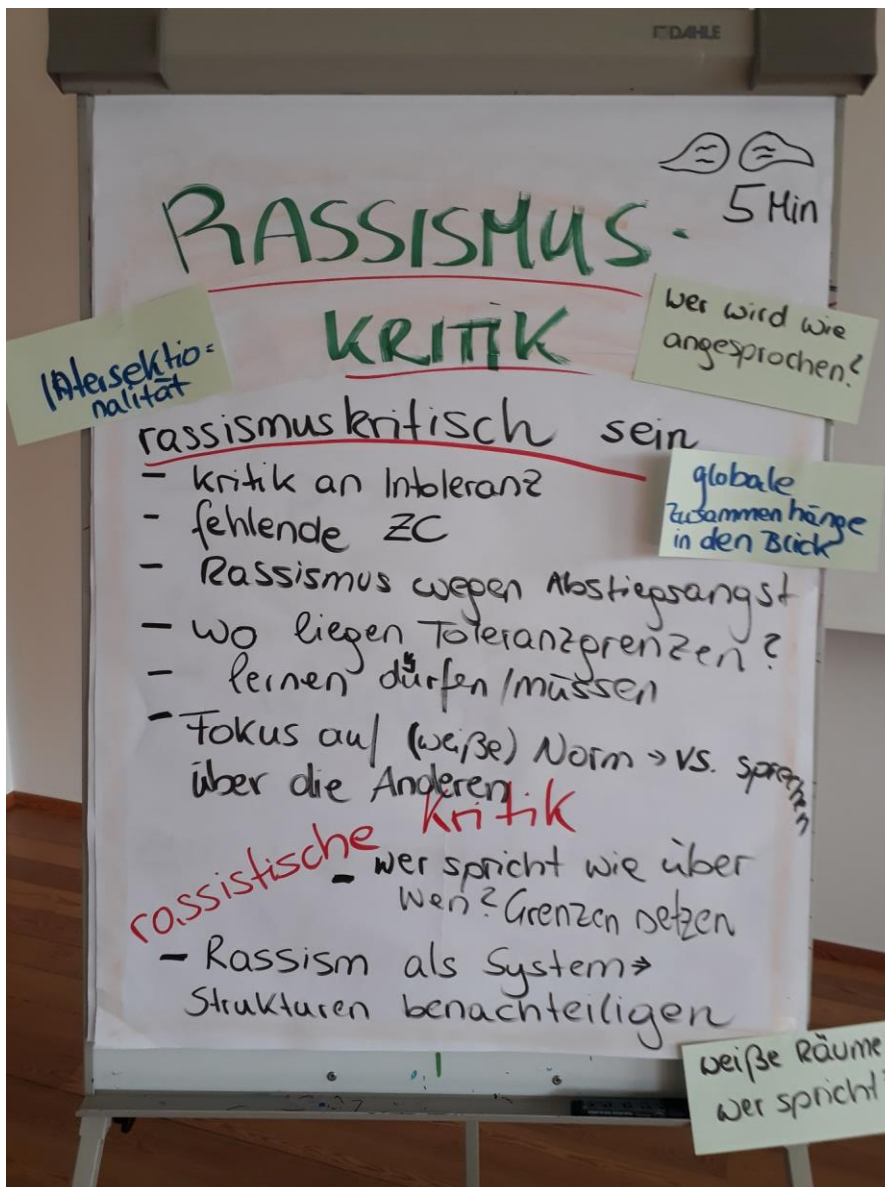 DAHLE
5 Min
RASSISMUS-
KRITIK
Intersektio=
nalität
wer wird wie
angesprochen?
rassismuskritisch sein
globale
Zusammenhänge
in den Blick
- Kritik an Intoleranz
- fehlende ZC
- Rassismus wegen Abstiegsangst
- wo liegen Toleranzgrenzen?
- lernen dürfen/müssen
- Fokus auf (weiße) Norm → vs. sprechen
über die Anderen
rassistische Kritik
- wer spricht wie über
wen? Grenzen setzen
- Rassism als System →
Strukturen benachteiligen
weiße Räume
wer spricht?